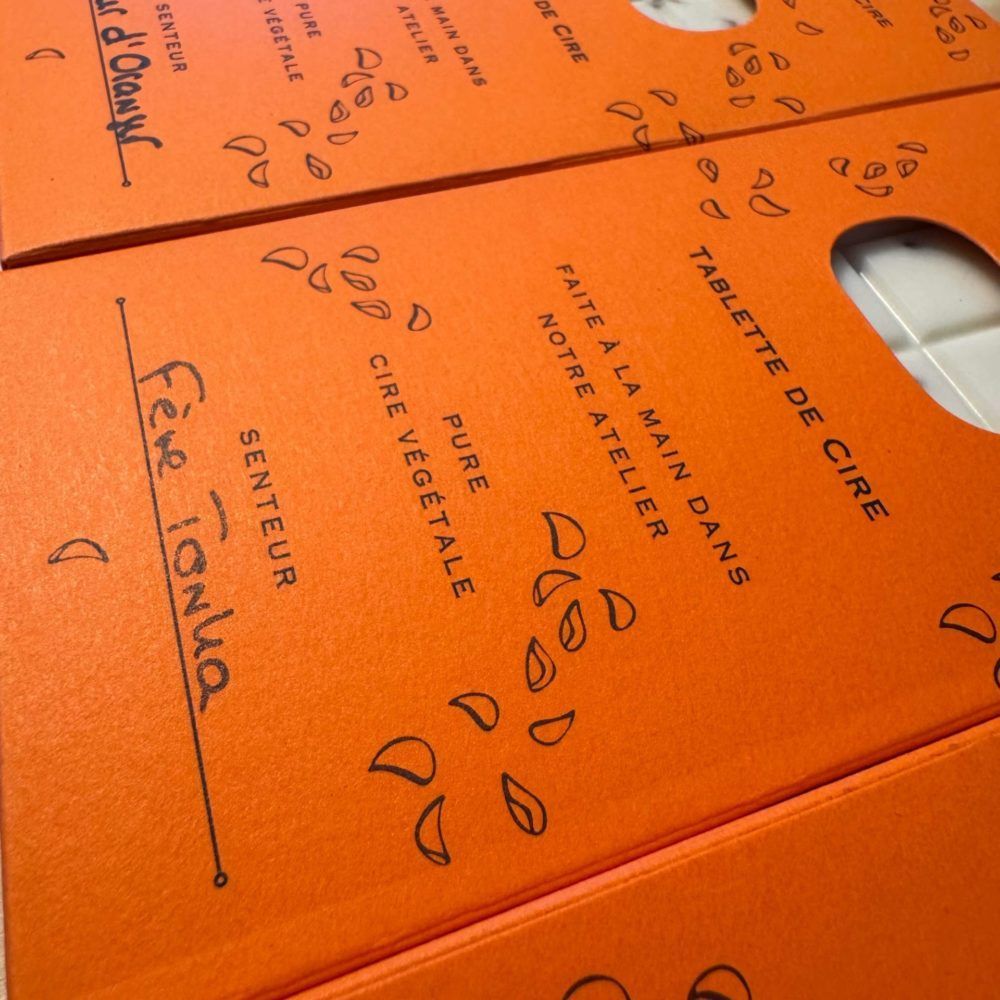 TABLETTE DE CIRE
FAITE À LA MAIN DANS
NOTRE ATELIER
PURE
CIRE VÉGÉTALE
SENTEUR
Fève Tonka
DE CIRE
MAIN DANS
ATELIER
PURE
VÉGÉTALE
SENTEUR
d'Oranger
CIRE